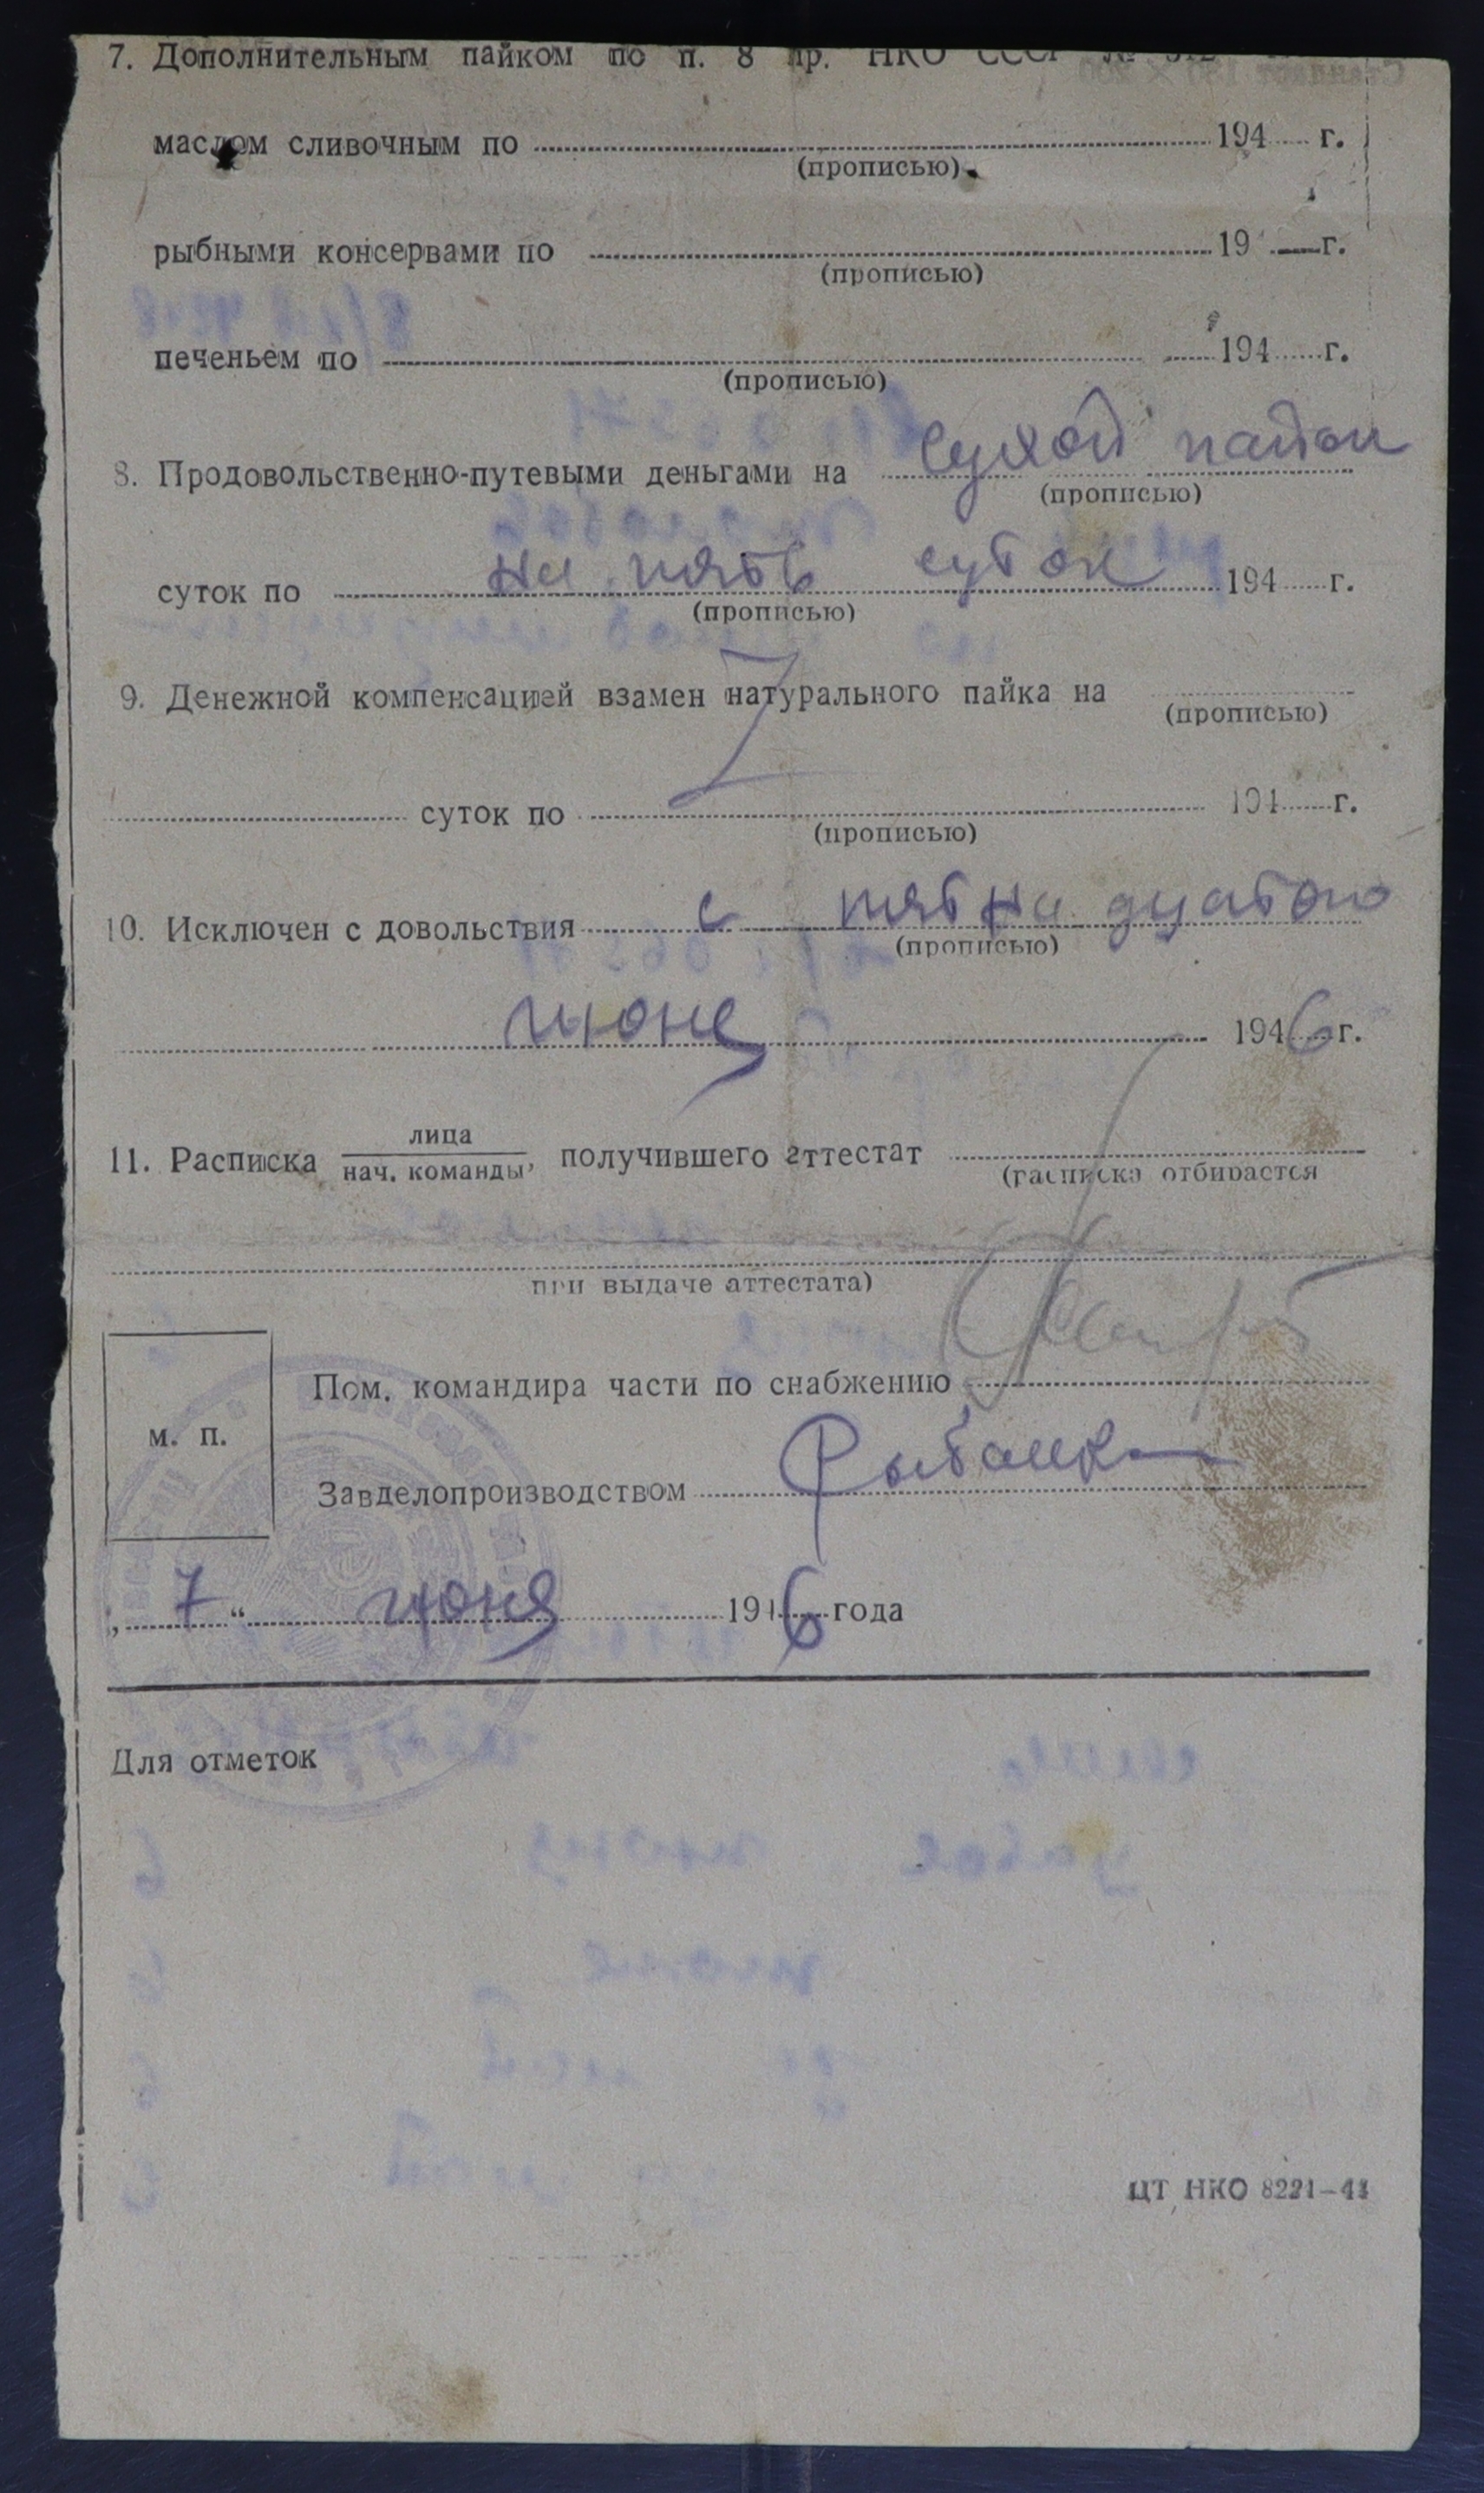 7. Дополнительным пайком по п. 8 пр. НКО СССР №
маслом сливочным по 194 г.
(прописью)
рыбными консервами по 19 г.
(прописью)
печеньем по 194 г.
(прописью)
8. Продовольственно-путевыми деньгами на сухой паёк
(прописью)
суток по на пять суток 194 г.
(прописью)
9. Денежной компенсацией взамен натурального пайка на
(прописью)
суток по 194 г.
(прописью)
10. Исключен с довольствия с пятнадцатого
(прописью)
июня 1946 г.
11. Расписка лица
нач. команды, получившего аттестат
(расписка отбирается
при выдаче аттестата)
Пом. командира части по снабжению
м. п.
Завделопроизводством
„ 7 “ июня 1946 года
Для отметок
ЦТ НКО 8221—44